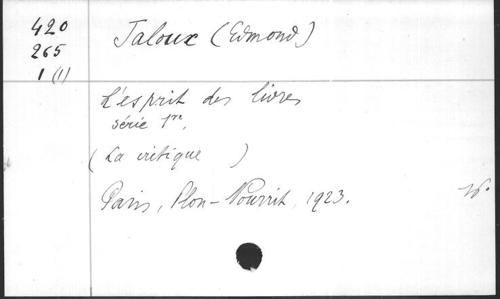 420
265
1 (1)
Jaloux (Edmond)
L'esprit des livres
série 1re.
(La critique )
Paris, Plon-Nourrit, 1923.